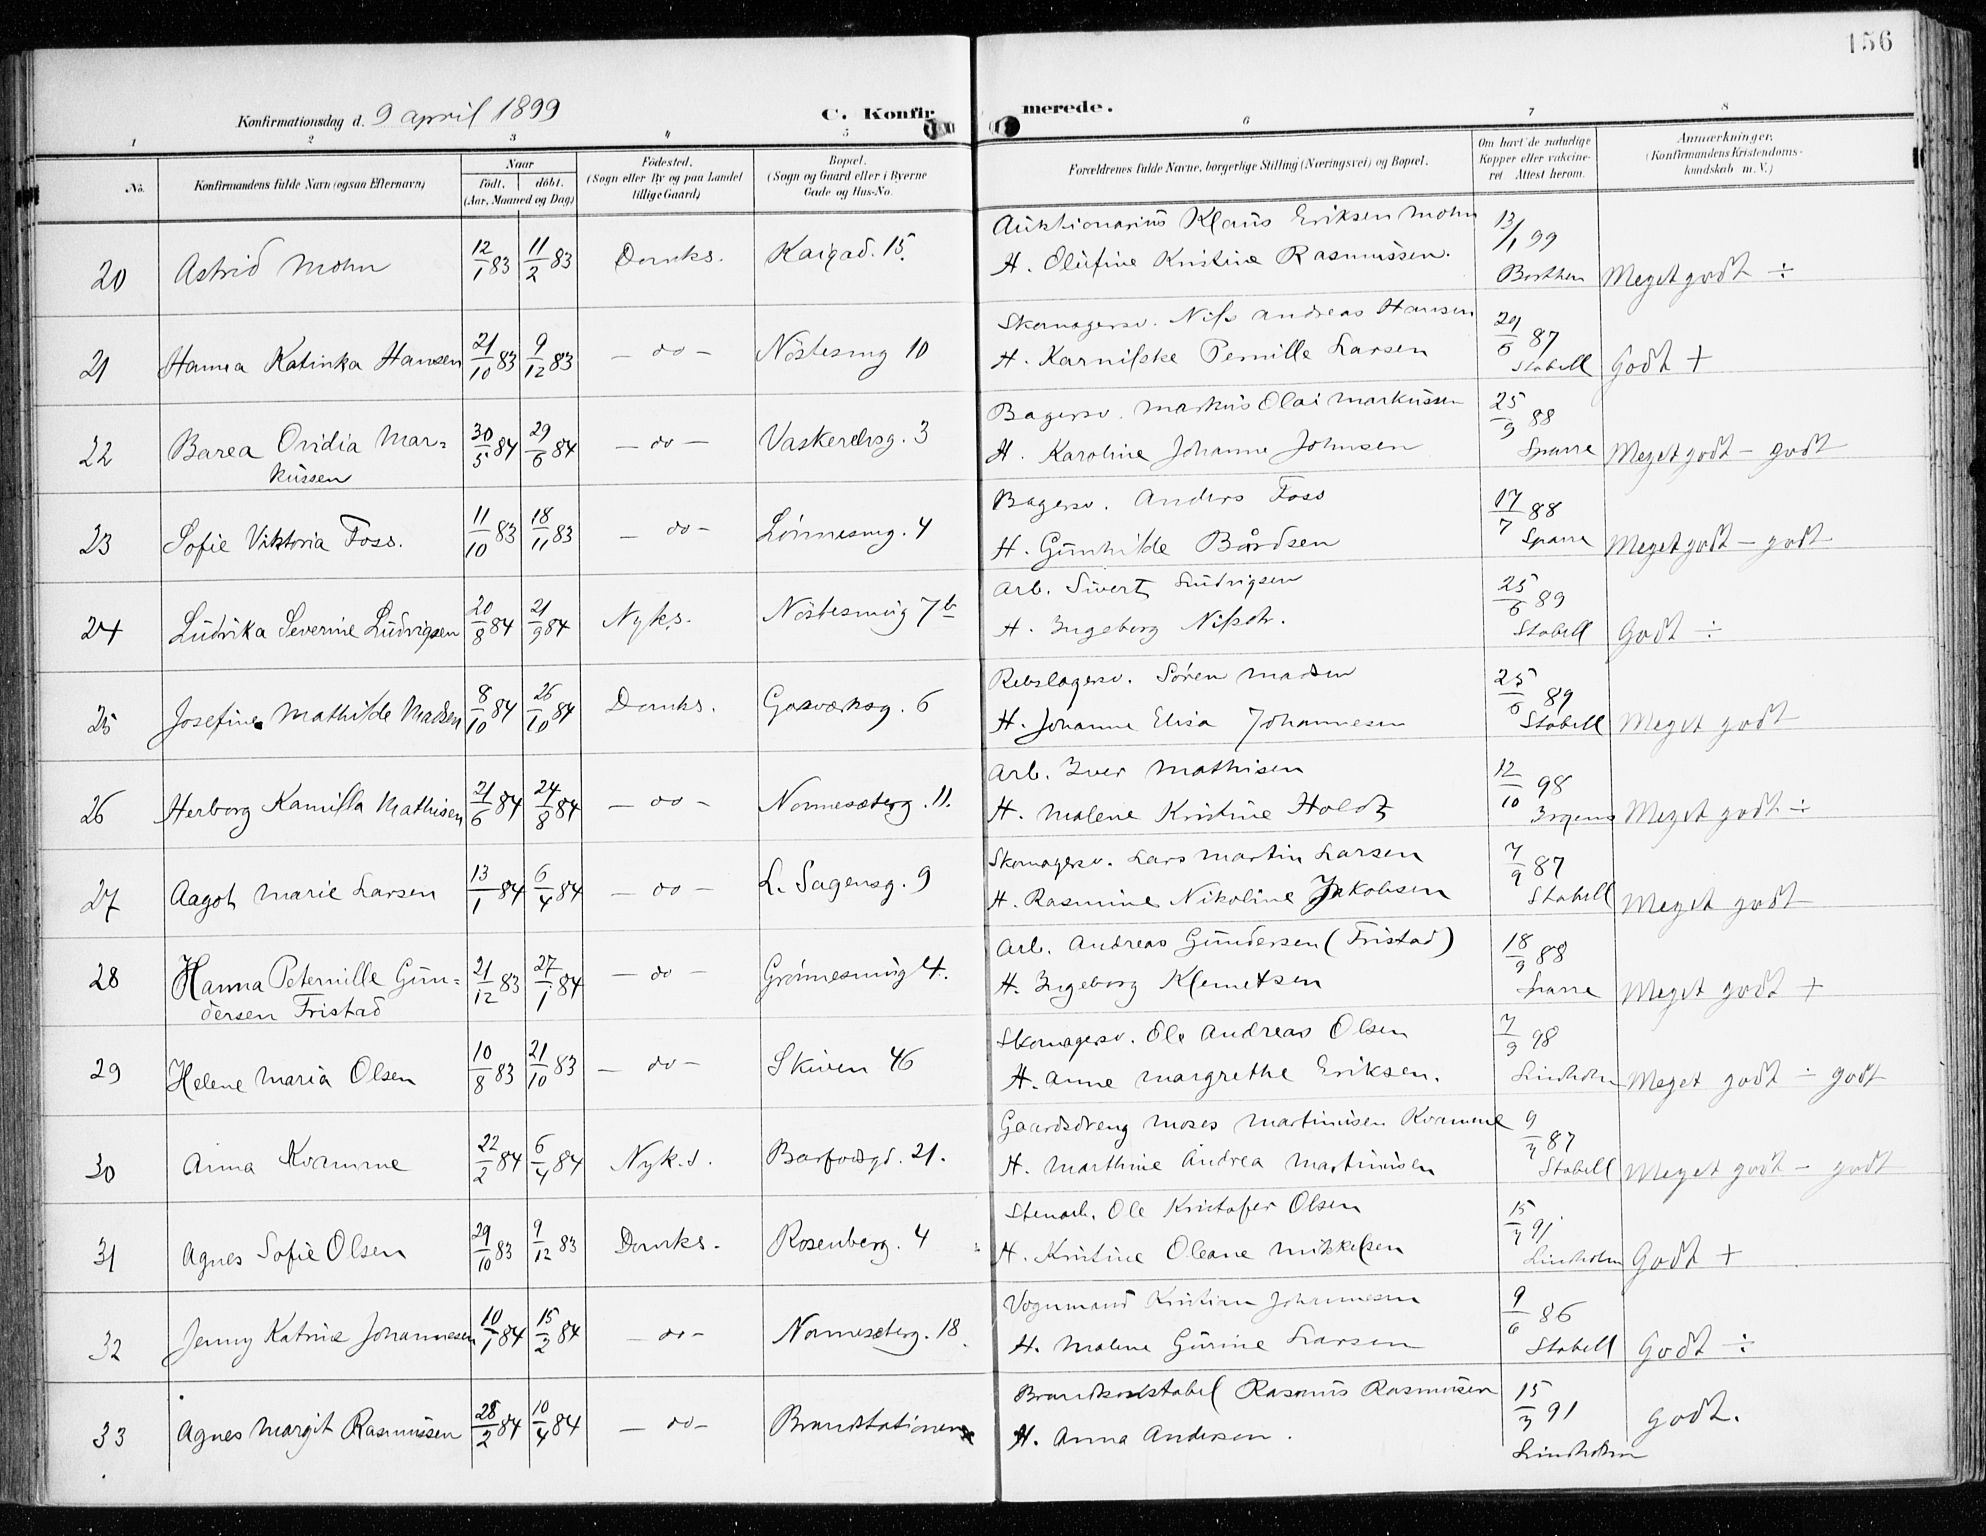 156
Konfirmationsdag d. 9 april 1899
C. Konfirmerede.
1 2 3 4 5 6 7 8
No. Konfirmandens fulde Navn (ogsaa Efternavn) Naar født. døbt. (Aar, Maaned og Dag) Fødested. (Sogn eller By og paa Landet tillige Gaard) Bopæl. (Sogn og Gaard eller i Byerne Gade og Hus-No. Forældrenes fulde Navne, borgerlige Stilling (Næringsvei) og Bopæl. Om havt de naturlige Kopper eller vakcineret. Attest herom. Anmærkninger. (Konfirmandens Kristendomskundskab m. V.)
20 Astrid Mohn 12/1 83 11/2 83 Domks. Kaigad. 15. Auktionarius Klaus Eriksen Mohn 13/1 99
H. Olufine Kristine Rasmussen. Borthen Meget godt ÷
21 Hanna Katinka Hansen 21/10 83 9/12 83 — do — Nöstesmug 10 Skomagersv. Nils Andreas Hansen 87
H. Pernille Larsen Stabell Godt +
22 Barea Ovidia Mar= 30/5 84 29/6 84 — do — 3 Bagersv. Markus Olai Markussen 25/9 88
kussen H. Karoline Johanne Johnsen Sparre Meget godt – godt
23 Sofie Viktoria Foss. 11/10 83 18/11 83 — do — Lönnesmug. 4 Bagersv. Anders Foss 17/7 88
H. Gunhilde Bårdsen Sparre Meget godt – godt
24 Ludvika Severine Ludvigsen 20/8 84 21/9 84 Nyks. Nöstesmug 7b Arb. Sivert Ludvigsen 25/6 89
H. Ingeborg Nilsdtr. Stabell Godt ÷
25 Josefine Mathilde Madsen 8/10 84 26/10 84 Domks. Gasværksg. 6 Rebslagersv. Sören Madsen 25/6 89
H. Johanne Elisa Johannesen Stabell Meget godt
26 Herborg Kamilla Mathisen 21/6 84 24/8 84 — do — Nonnesæterg. 11. Arb. Iver Mathisen 12/10 98
H. Malene Kristine Holdt Irgens Meget godt ÷
27 Aagot Marie Larsen 13/1 84 6/4 84 — do — L. Sagensg. 9 Skomagersv. Lars Martin Larsen 7/9 87
H. Rasmine Nikoline Jakobsen Stabell Meget godt
28 Hanna Peternille Gun= 21/12 83 27/1 84 — do — Grönnesmug 4. Arb. Andreas Gundersen (Fristad) 18/9 88
dersen Fristad H. Ingeborg Klemetsen Sparre Meget godt +
29 Helene Maria Olsen 10/8 83 21/10 83 — do — Skiven 46 Skomagersv. Ole Andreas Olsen 7/9 98
H. Anne Margrethe Eriksen. Lindholm Meget godt ÷ godt
30 Anna Kvamme 22/2 84 6/4 84 Nyk.s. 21. Gaardsdreng Moses Martinusen Kvamme 87
H. Marthine Andrea Martinusen Stabell Meget godt – godt
31 Agnes Sofie Olsen 29/10 83 9/12 83 Domks. Rosenberg. 4 Stenarb. Ole Kristofer Olsen 91
H. Kristine Oleane Mikkelsen Lindholm Godt +
32 Jenny Katrine Johannesen 10/1 84 15/2 84 — do — Nonnesæterg. 18. Vognmand Kristian Johannesen 9/6 86
H. Malene Gurine Larsen Stabell Godt ÷
33 Agnes Margit Rasmussen 28/2 84 10/4 84 — do — Brandstationen Brandkonstabel Rasmus Rasmussen 15/3 91
H. Anna Andersen. Lindholm godt.